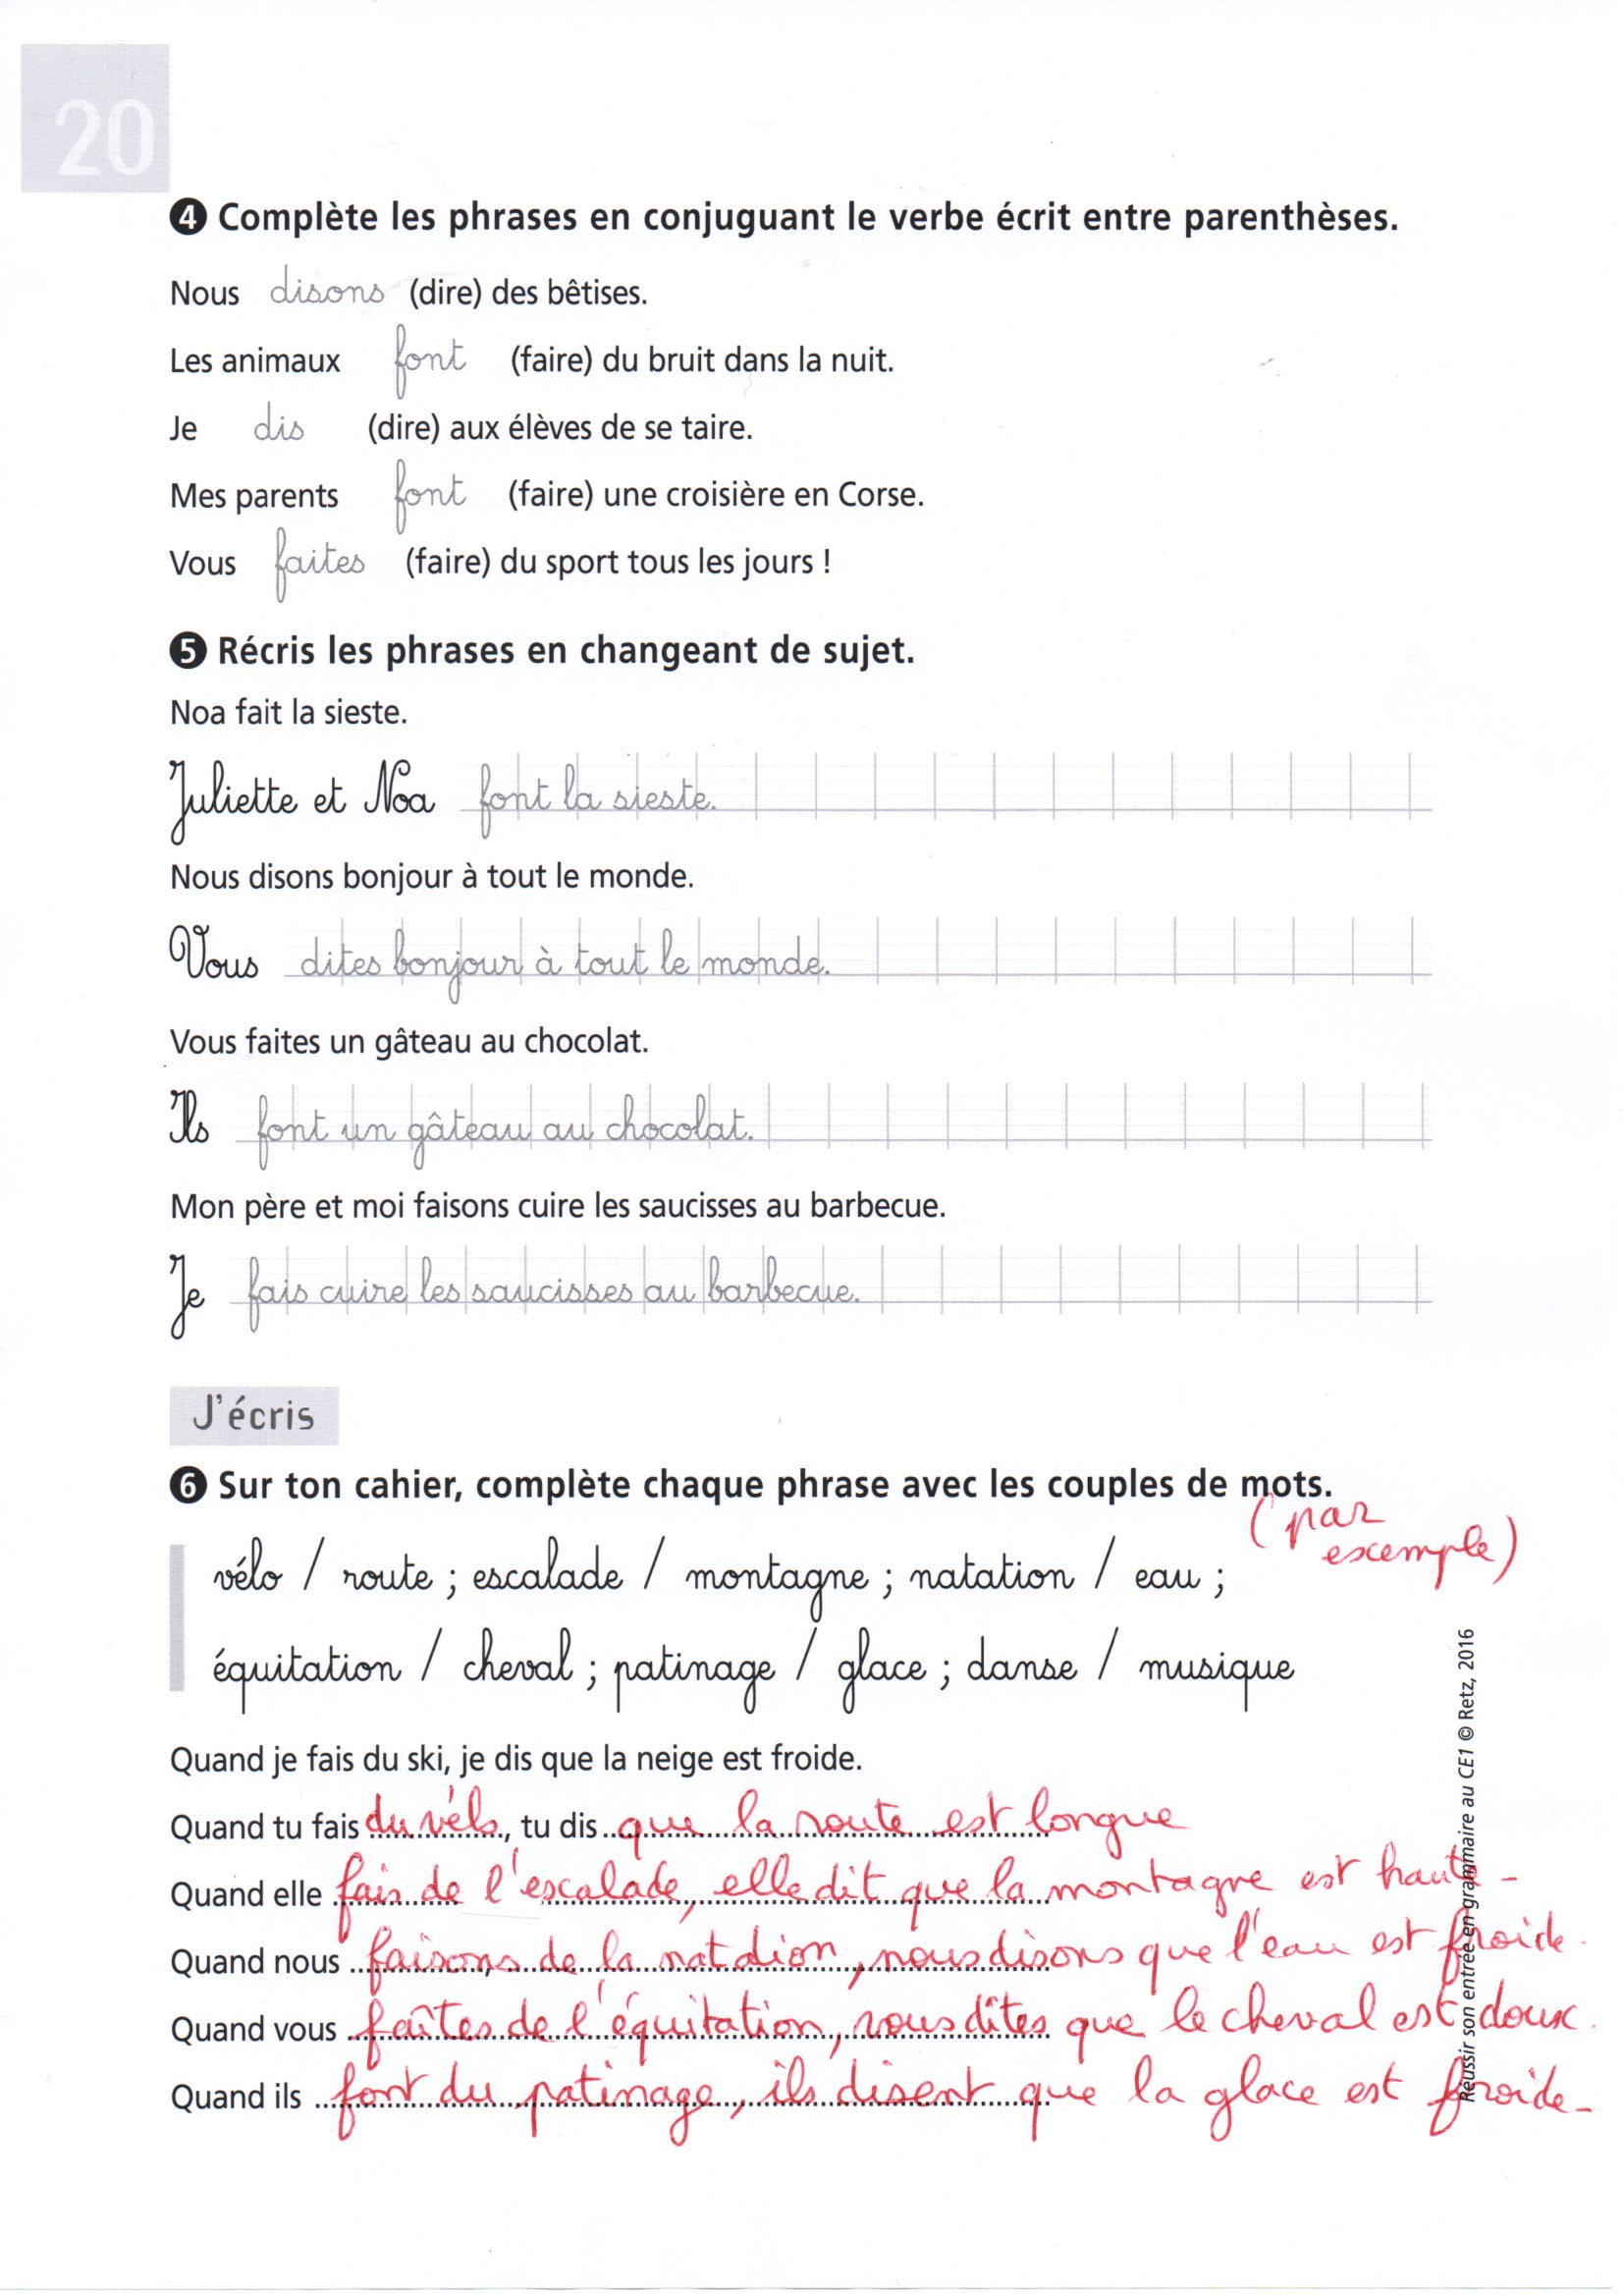 20
4 Complète les phrases en conjuguant le verbe écrit entre parenthèses.
Nous disons (dire) des bêtises.
Les animaux font (faire) du bruit dans la nuit.
Je dis (dire) aux élèves de se taire.
Mes parents font (faire) une croisière en Corse.
Vous faites (faire) du sport tous les jours !
5 Récris les phrases en changeant de sujet.
Noa fait la sieste.
Juliette et Noa font la sieste.
Nous disons bonjour à tout le monde.
Vous dites bonjour à tout le monde.
Vous faites un gâteau au chocolat.
Ils font un gâteau au chocolat.
Mon père et moi faisons cuire les saucisses au barbecue.
Je fais cuire les saucisses au barbecue.
J'écris
6 Sur ton cahier, complète chaque phrase avec les couples de mots.
(par
exemple)
vélo / route ; escalade / montagne ; natation / eau ;
équitation / cheval ; patinage / glace ; danse / musique
Quand je fais du ski, je dis que la neige est froide.
Quand tu fais du vélo, tu dis que la route est longue
Quand elle fais de l'escalade, elle dit que la montagne est haute.
Quand nous faisons de la natation, nous disons que l'eau est froide.
Quand vous faîtes de l'équitation, vous dîtes que le cheval est doux.
Quand ils font du patinage, ils disent que la glace est froide.
Réussir son entrée en grammaire au CE1 © Retz, 2016